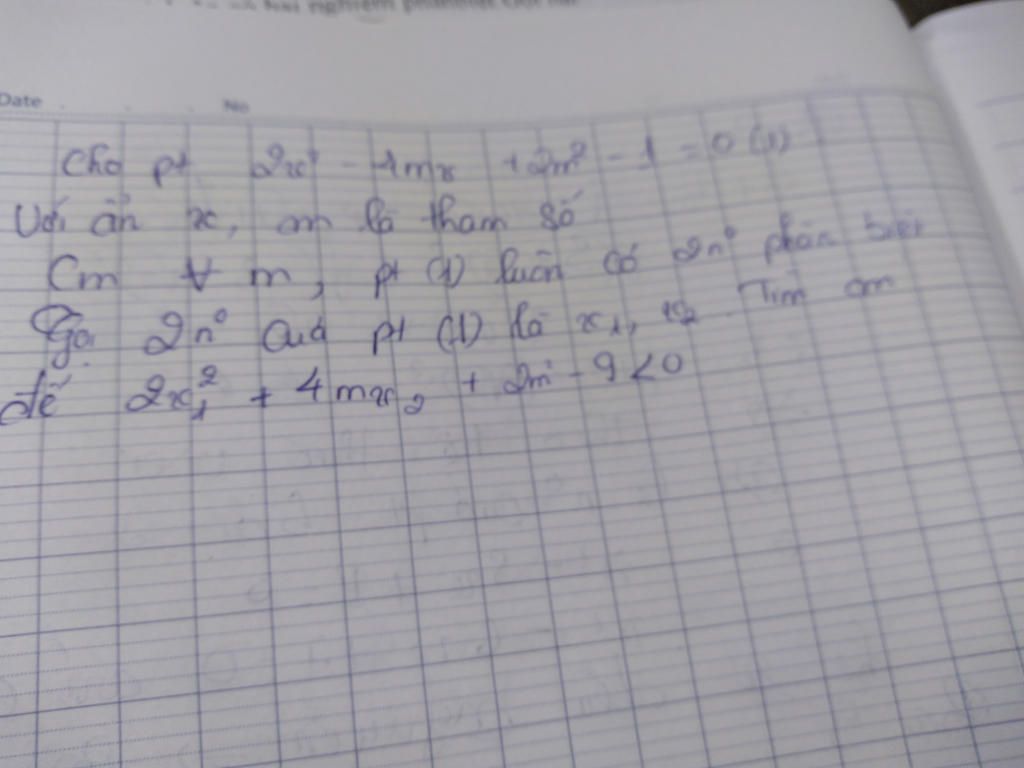 hai nghiệm phân biệt
Date No
Cho pt 2x² - 4mx + 2m² - 1 = 0 (1)
Với ẩn x, m là tham số
Cm ∀ m, pt (1) luôn có 2n⁰ phân biệt
Gọi 2n⁰ của pt (1) là x₁, x₂. Tìm m
để 2x₁² + 4mx₂ + 2m² - 9 < 0